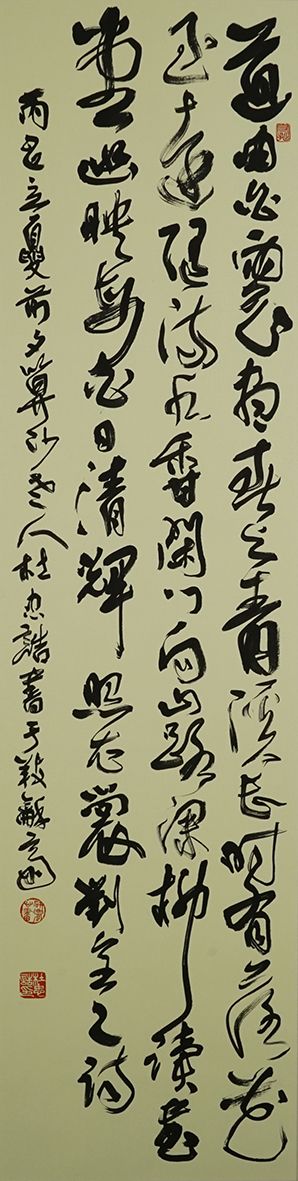 道由白雲盡春与青溪長时有落花
至遠隨流水香閑門向山路深柳讀書
堂幽映每白日清輝照衣裳劉詩
丙申立夏前夕算沙老人杜忠誥書于